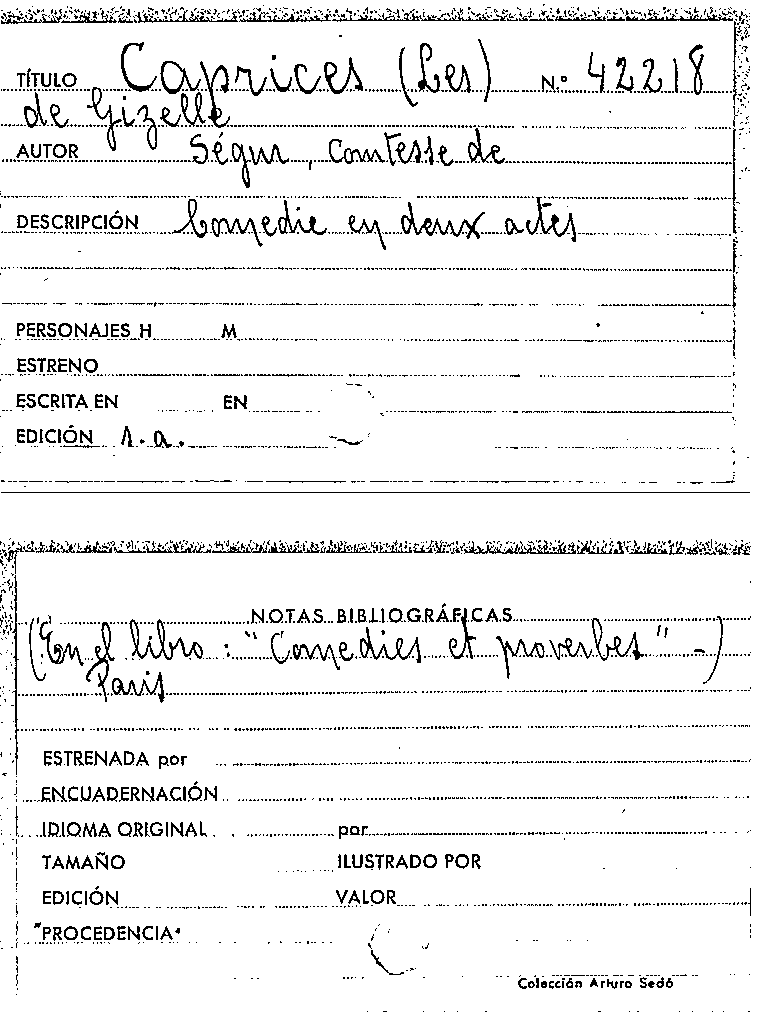 TÍTULO Caprices (Les) N.º 42218
de Gizelle
AUTOR Ségur, Comtesse de
DESCRIPCIÓN Comedie en deux actes
PERSONAJES H M
ESTRENO
ESCRITA EN EN
EDICIÓN s.a.
NOTAS BIBLIOGRÁFICAS
(En el libro: "Comedies et proverbes" -)
Paris
ESTRENADA por
ENCUADERNACIÓN
IDIOMA ORIGINAL por
TAMAÑO ILUSTRADO POR
EDICIÓN VALOR
PROCEDENCIA
Colección Arturo Sedó